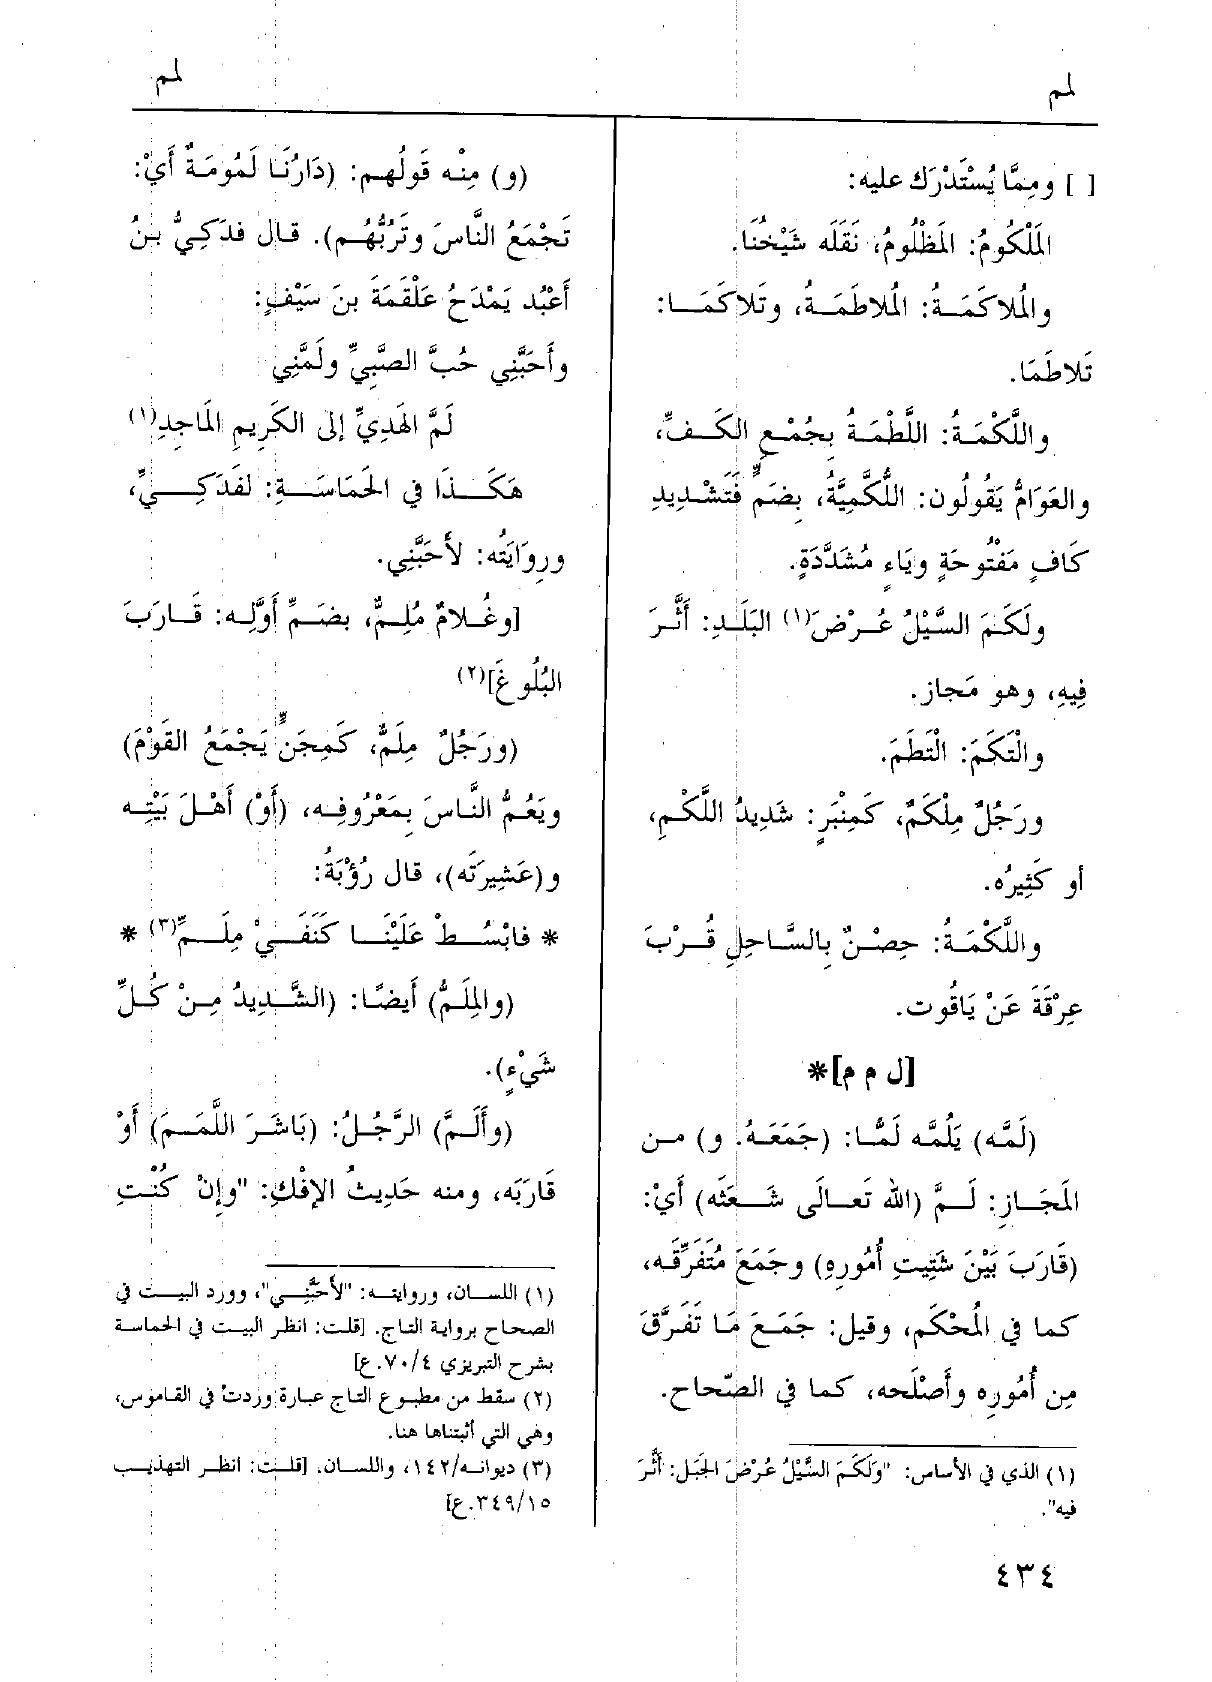 لمم
لمم
[ ] ومِمَّا يُسْتَدْرَك عليه:
المَلْكُومُ: المَظْلُومُ، نَقَلَه شَيْخُنَا.
والمُلاكَمَةُ: المُلاطَمَةُ، وتَلاكَمَا:
تَلاطَمَا.
واللَّكْمَةُ: اللَّطْمَةُ بِجُمْعِ الكَفِّ،
والعَوَامُّ يَقُولُون: اللُّكَّمِيَّةُ، بِضَمٍّ فَتَشْدِيدِ
كَافٍ مَفْتُوحَةٍ ويَاءٍ مُشَدَّدَةٍ.
ولَكَمَ السَّيْلُ عُرْضَ(١) البَلَدِ: أَثَّرَ
فِيهِ، وهو مَجاز.
والْتَكَمَ: الْتَطَمَ.
ورَجُلٌ مِلْكَمٌ، كَمِنْبَرٍ: شَدِيدُ اللَّكْمِ،
أو كَثِيرُه.
واللَّكْمَةُ: حِصْنٌ بِالسَّاحِلِ قُرْبَ
عِرْقَةَ عَنْ يَاقُوت.
[ل م م]*
(لَمَّه) يَلُمَّه لَمًّا: (جَمَعَهُ. و) من
المَجَازِ: لَمَّ (الله تَعالَى شَعَثَه) أَيْ:
(قَارَبَ بَيْنَ شَتِيتِ أُمُورِهِ) وجَمَعَ مُتَفَرِّقَه،
كما في المُحْكَم، وقيل: جَمَعَ مَا تَفَرَّقَ
مِن أُمُورِه وأَصْلَحه، كما في الصّحاح.
(١) الذي في الأساس: "ولَكَمَ السَّيْلُ عُرْضَ الجَبَل: أَثَّرَ
فيه".
(و) مِنْه قَولُهم: (دَارُنَا لَمُومَةٌ أَيْ:
تَجْمَعُ النَّاسَ وتَرُبُّهُم). قال فَدَكِيُّ بنُ
أَعْبُد يَمْدَحُ عَلْقَمَةَ بنَ سَيْفٍ:
وأَحَبَّنِي حُبَّ الصَّبِيِّ ولَمَّنِي
لَمَّ الهَدِيِّ إلى الكَرِيمِ المَاجِدِ(١)
هَكَذَا في الحَمَاسَةِ: لفَدَكِيٍّ،
ورِوَايَتُه: لأَحَبَّنِي.
[وغُلامٌ مُلِمٌّ، بضَمِّ أَوَّلِه: قَارَبَ
البُلُوغَ](٢)
(ورَجُلٌ مِلَمٌّ، كَمِجَنٍّ يَجْمَعُ القَوْمَ)
ويَعُمُّ النَّاسَ بِمَعْرُوفِه، (أَوْ) أَهْلَ بَيْتِه
و(عَشِيرَتَه)، قال رُؤْبَةُ:
* فابْسُطْ عَلَيْنَا كَنَفَيْ مِلَمِّ(٣) *
(والمِلَمُّ) أَيضًا: (الشَّدِيدُ مِنْ كُلِّ
شَيْءٍ).
(وأَلَمَّ) الرَّجُلُ: (بَاشَرَ اللَّمَمَ) أَوْ
قَارَبَه، ومنه حَدِيثُ الإفْكِ: "وإنْ كُنْتِ
(١) اللسان، وروايته: "لأَحَبَّنِي"، وورد البيت في
الصحاح برواية التاج. [قلت: انظر البيت في الحماسة
بشرح التبريزي ٧٠/٤.ع]
(٢) سقط من مطبوع التاج عبارة وردت في القاموس،
وهي التي أثبتناها هنا.
(٣) ديوانه/١٤٢، واللسان. [قلت: انظر التهذيب
٣٤٩/١٥.ع]
٤٣٤